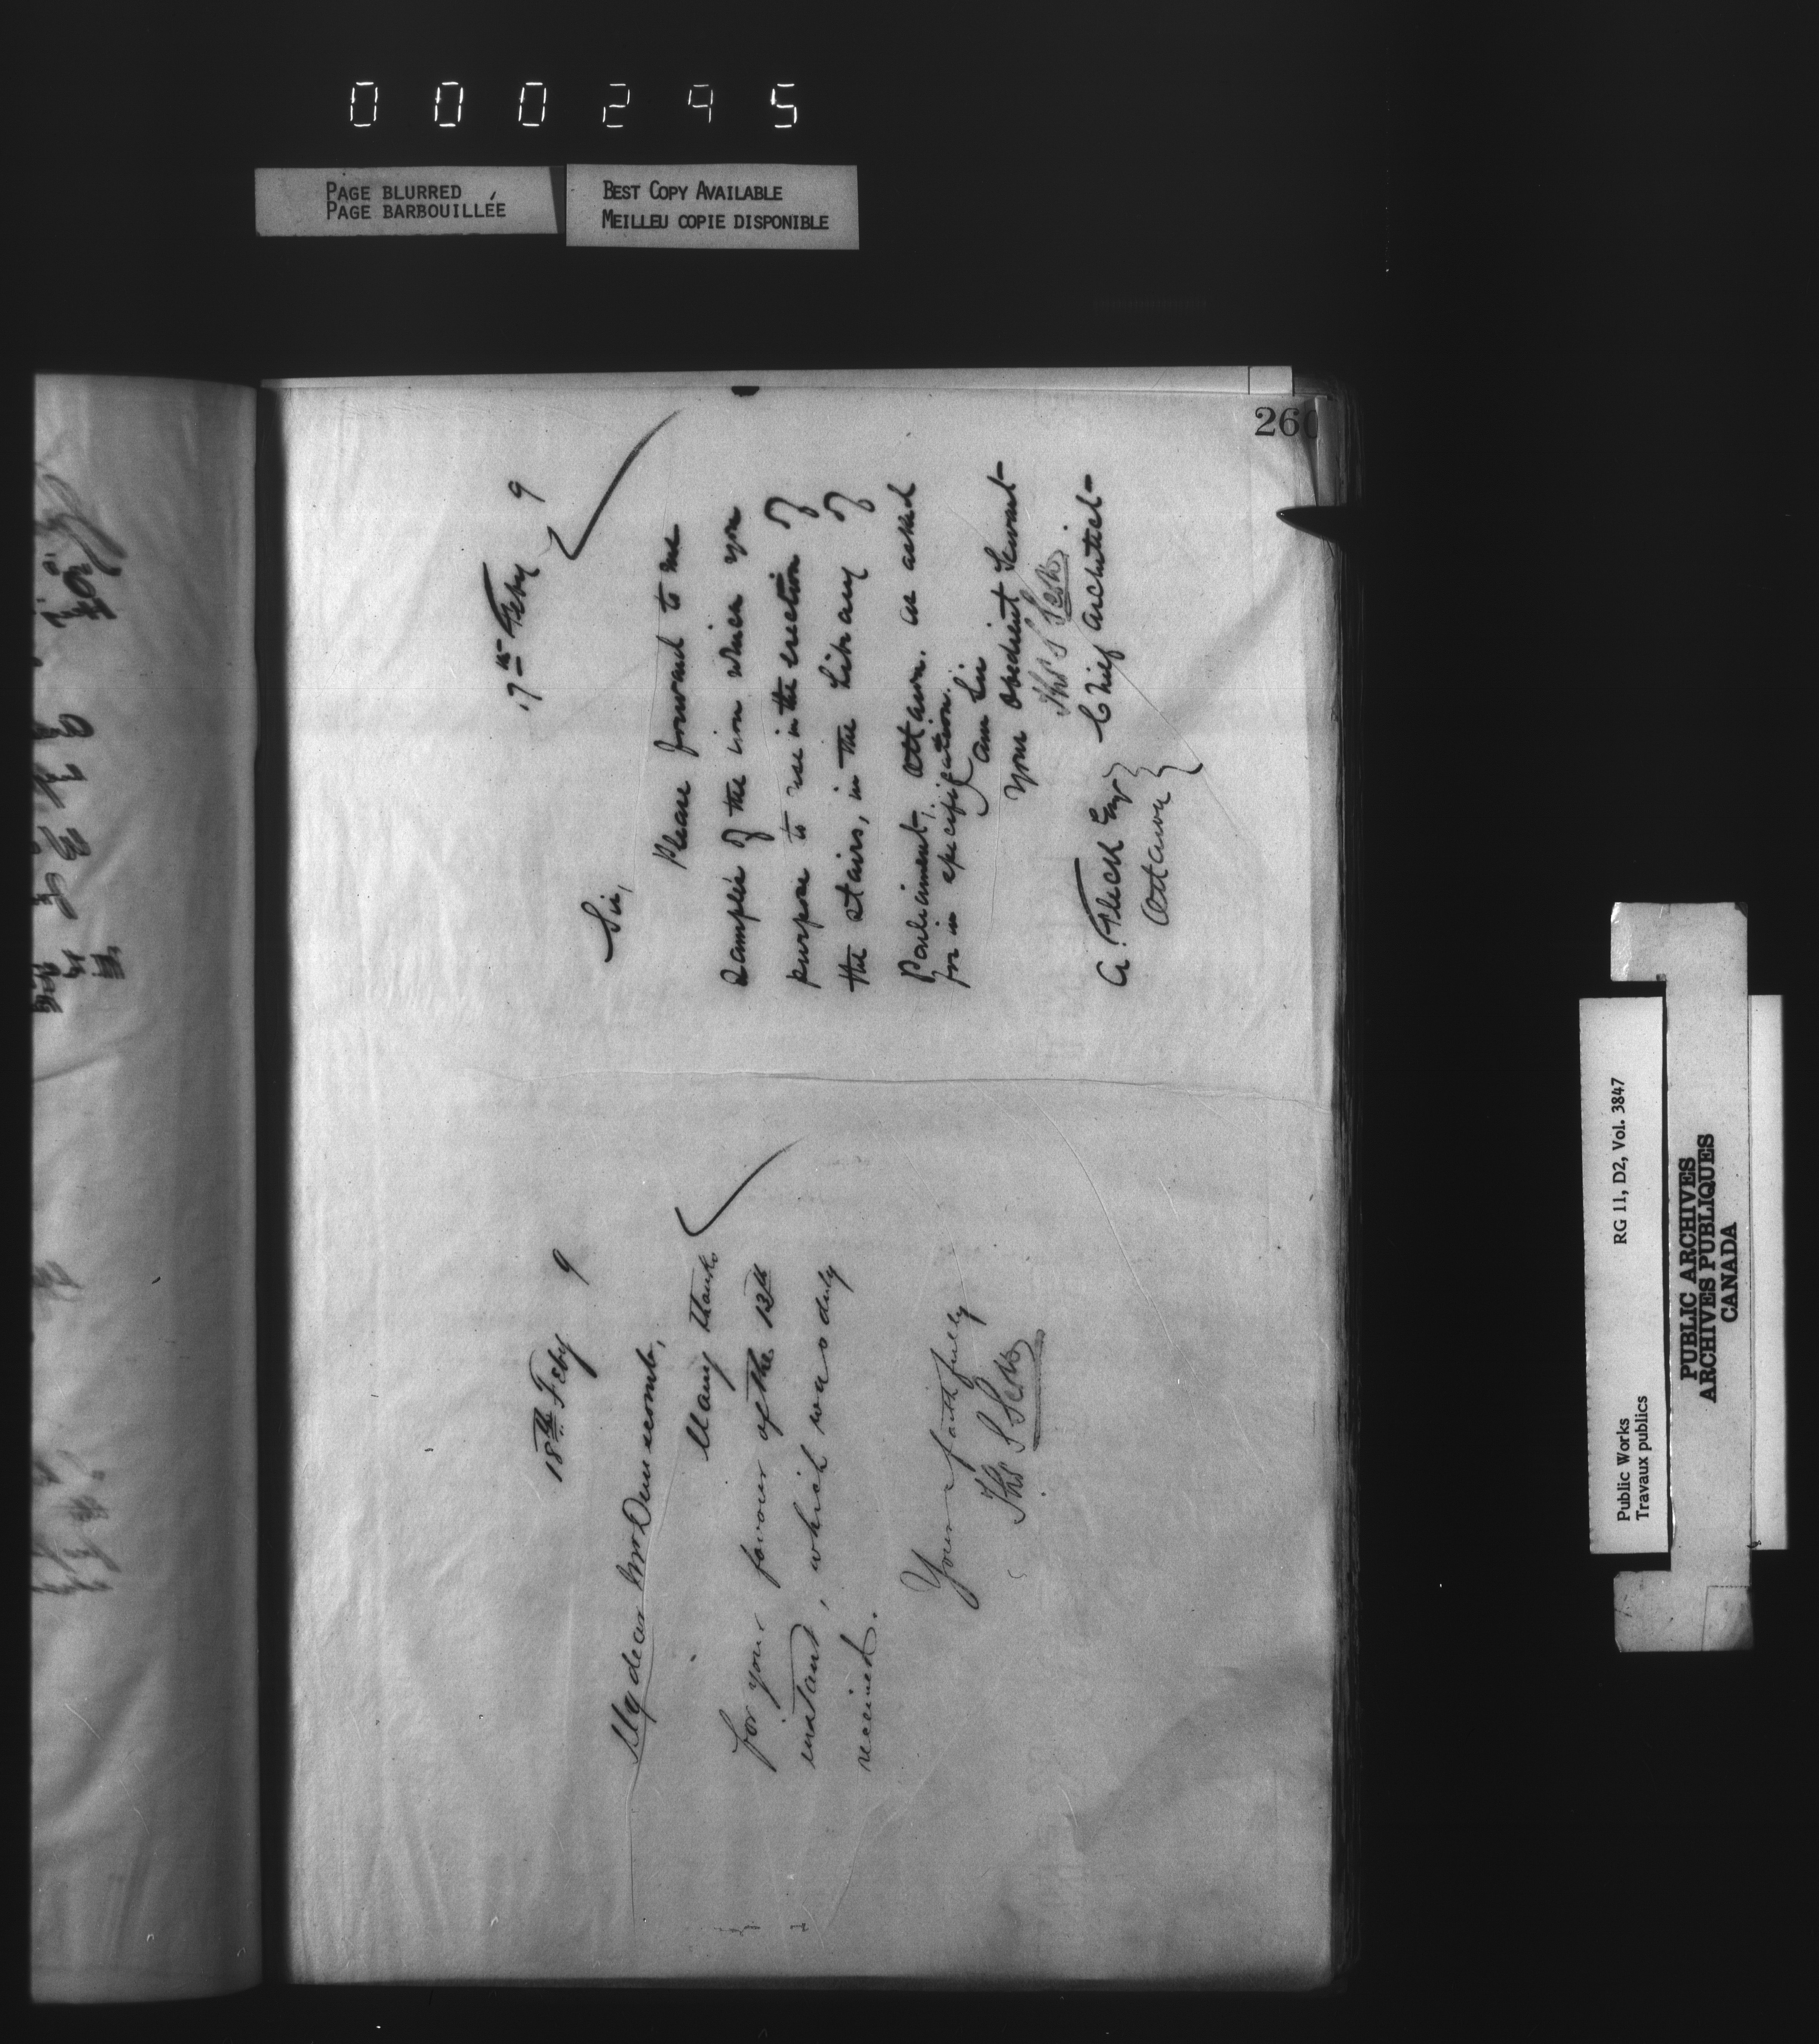 000295
PAGE BLURRED
PAGE BARBOUILLÉE
BEST COPY AVAILABLE
MEILLEU COPIE DISPONIBLE
260
18th Feby 9
My dear Mr Dunscomb,
Many thanks
for your favour of the 13th
instant, which was duly
received.
Yours faithfully
Thos S Scott
17th Feby 9
Sir,
Please forward to me
samples of the iron which you
purpose to use in the erection of
the stairs, in the Library of
Parliament, Ottawa. as asked
for in specification.
am Sir
your obedient Servant
Thos S Scott
Chief Architect
A. Fleck Esqr
Ottawa
Public Works
Travaux publics
RG 11, D2, Vol. 3847
PUBLIC ARCHIVES
ARCHIVES PUBLIQUES
CANADA